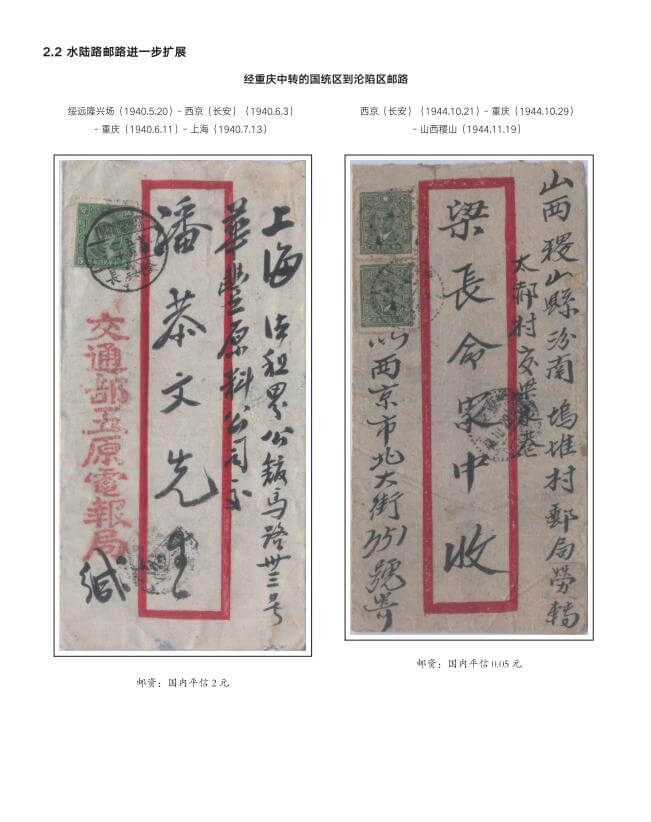 2.2 水陆路邮路进一步扩展
经重庆中转的国统区到沦陷区邮路
绥远隆兴场（1940.5.20）- 西京（长安）（1940.6.3）
- 重庆（1940.6.11）- 上海（1940.7.13）
西京（长安）（1944.10.21）- 重庆（1944.10.29）
- 山西稷山（1944.11.19）
上海 法租界公馆马路卅三号
華豐原料公司交
潘恭文先生
交通部五原電報局
缄
山西稷山縣汾南 塢堆村郵局勞轉
太郝村交
梁長命家中收
西京市北大街351號寄
邮资：国内平信 2 元
邮资：国内平信 0.05 元